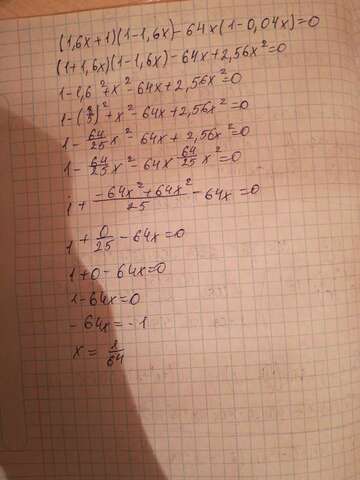 (1,6x+1)(1-1,6x)-64x(1-0,04x)=0
(1+1,6x)(1-1,6x)-64x+2,56x²=0
1-1,6²+x²-64x+2,56x²=0
1-(8/5)²+x²-64x+2,56x²=0
1-64/25x²-64x+2,56x²=0
1-64/25x²-64x 64/25x²=0
1+(-64x²+64x²)/25-64x=0
1+0/25-64x=0
1+0-64x=0
1-64x=0
-64x=-1
x=1/64